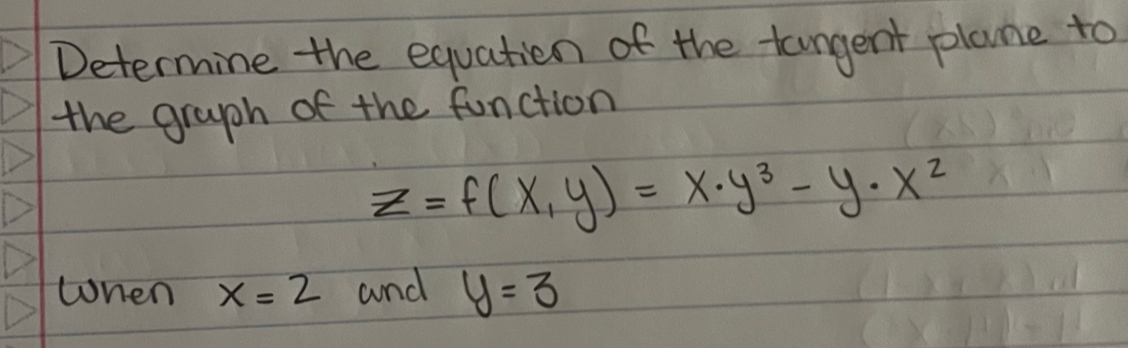 Determine the equation of the tangent plane to
the graph of the function
z = f(x, y) = x·y³ - y·x²
when x = 2 and y = 3